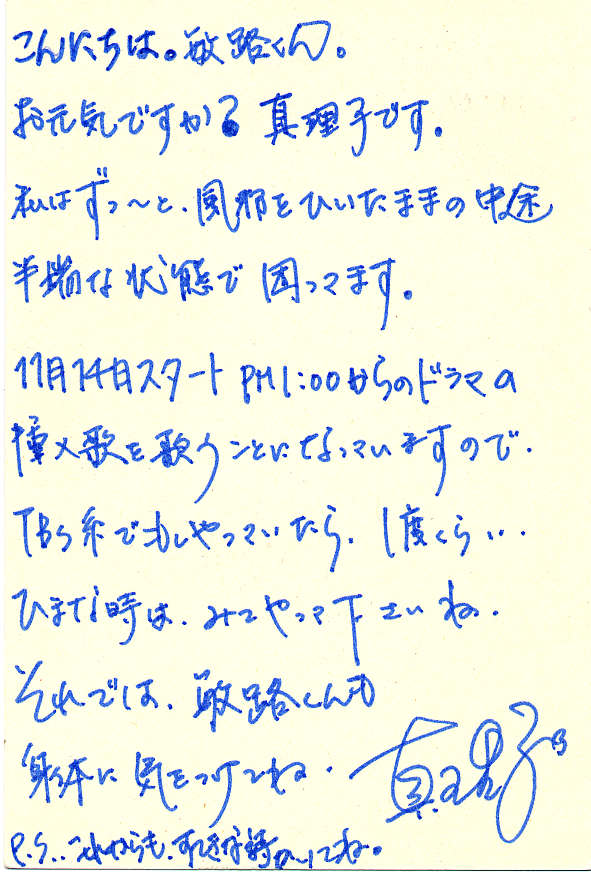 こんにちは。敏路くん。
お元気ですか? 真理子です。
私はずっ〜と、風邪をひいたままの中途
半端な状態で困ってます。
11月14日スタート PM1:00からのドラマの
挿入歌を歌うことになっていますので、
TBS系でもしやっていたら、1度くらい…
ひまな時は、みてやって下さいね。
それでは、敏路くんも
身体に気をつけてね。 真理子
P.S.、これからも、すてきな詩かいてね。